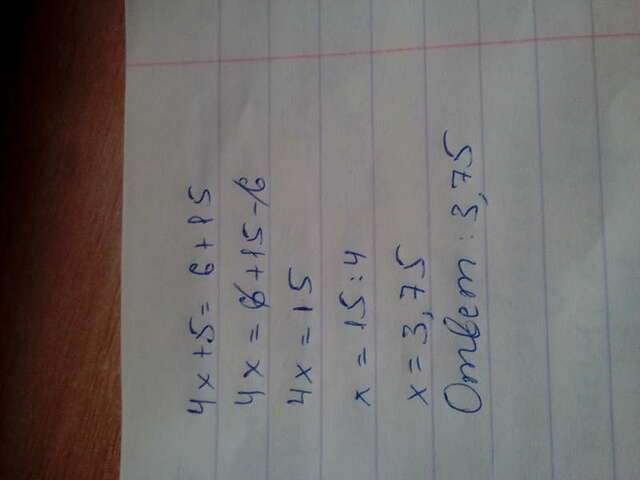 4x+5=6+15
4x=6+15-6
4x=15
x=15:4
x=3,75
Ответ: 3,75